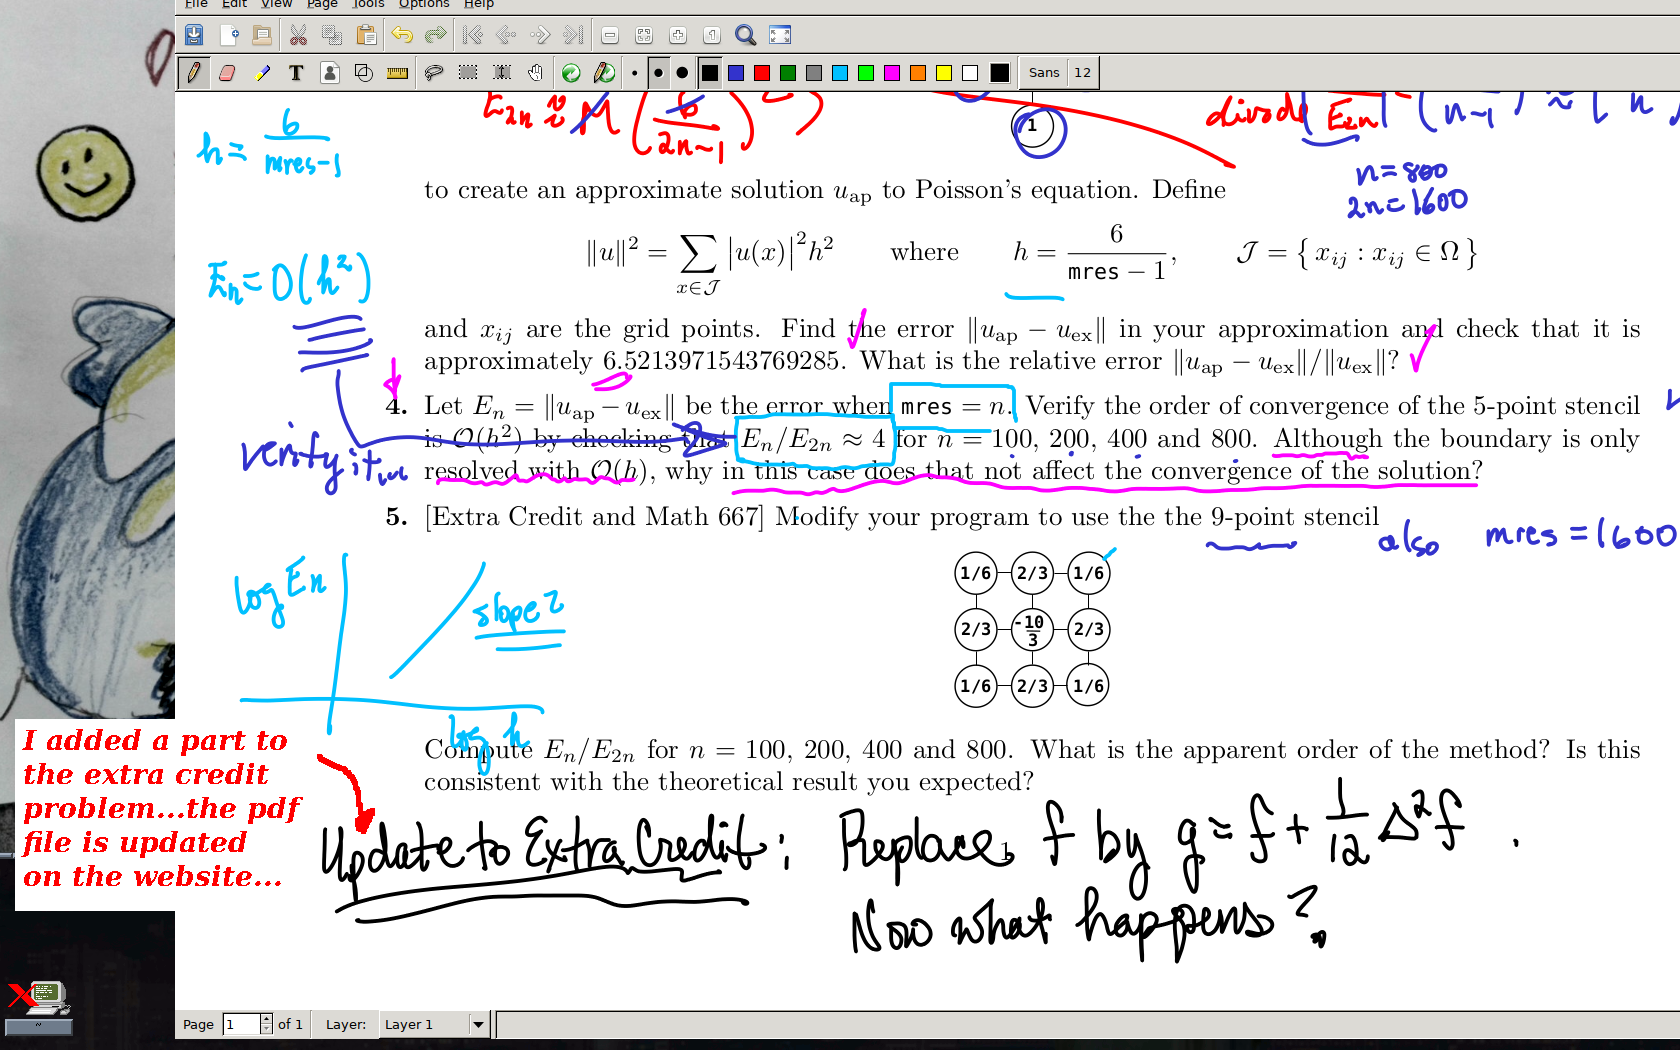 File Edit View Page Tools Options Help
Sans 12
h = 6/(mres-1)
E2n ≈ M (6/(2n-1))
1
divide
E2n
n-1
n=800
2n=1600
to create an approximate solution u_ap to Poisson's equation. Define
‖u‖² = ∑_{x∈𝒥} |u(x)|²h² where h = 6/(mres − 1), 𝒥 = { x_ij : x_ij ∈ Ω }
En = O(h²)
and x_ij are the grid points. Find the error ‖u_ap − u_ex‖ in your approximation and check that it is
approximately 6.5213971543769285. What is the relative error ‖u_ap − u_ex‖/‖u_ex‖?
4. Let E_n = ‖u_ap − u_ex‖ be the error when mres = n. Verify the order of convergence of the 5-point stencil
is 𝒪(h²) by checking that E_n/E_2n ≈ 4 for n = 100, 200, 400 and 800. Although the boundary is only
verify it
resolved with 𝒪(h), why in this case does that not affect the convergence of the solution?
5. [Extra Credit and Math 667] Modify your program to use the the 9-point stencil
also mres = 1600
1/6 2/3 1/6
2/3 -10/3 2/3
1/6 2/3 1/6
log En
slope 2
log h
Compute E_n/E_2n for n = 100, 200, 400 and 800. What is the apparent order of the method? Is this
consistent with the theoretical result you expected?
I added a part to
the extra credit
problem...the pdf
file is updated
on the website...
Update to Extra Credit: Replace f by g = f + 1/12 Δ²f .
1
Now what happens?
Page 1 of 1 Layer: Layer 1